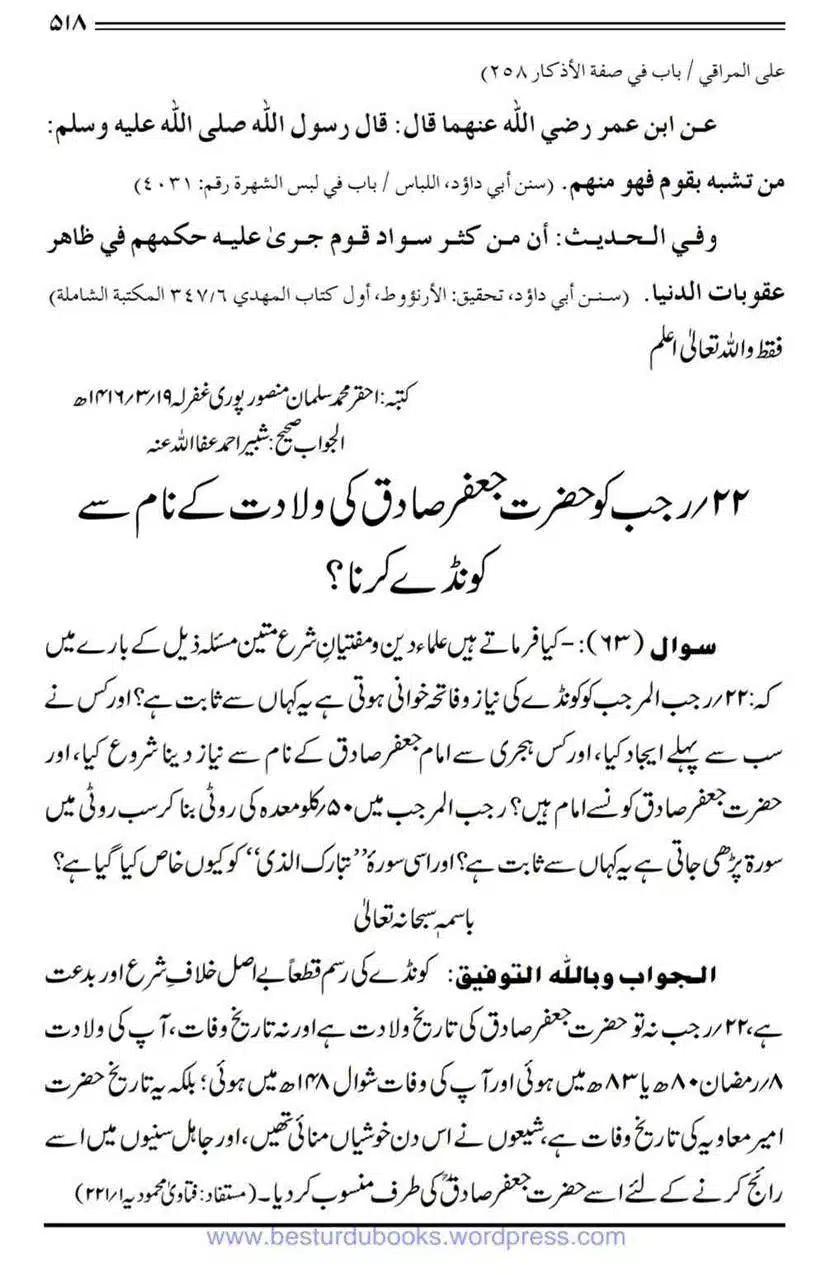 ۵۱۸
علی المراقي / باب في صفة الأذكار ۲۵۸)
عن ابن عمر رضي الله عنهما قال: قال رسول الله صلى الله عليه وسلم:
من تشبه بقوم فهو منهم. (سنن أبي داؤد، اللباس / باب في لبس الشهرة رقم: ٤٠٣١)
وفي الحديث: أن من كثر سواد قوم جرىٰ عليه حكمهم في ظاهر
عقوبات الدنيا. (سنن أبي داؤد، تحقيق: الأرنؤوط، أول كتاب المهدي ٣٤٧/٦ المكتبة الشاملة)
فقط واللہ تعالیٰ اعلم
کتبہ: احقر محمد سلمان منصورپوری غفرلہ ۱۹؍۳؍۱۴۱۶ھ
الجواب صحیح: شبیر احمد عفا اللہ عنہ
۲۲؍رجب کو حضرت جعفر صادق کی ولادت کے نام سے
کونڈے کرنا؟
سوال (۶۳):- کیا فرماتے ہیں علماء دین ومفتیانِ شرع متین مسئلہ ذیل کے بارے میں
کہ: ۲۲؍رجب المرجب کو کونڈے کی نیاز وفاتحہ خوانی ہوتی ہے یہ کہاں سے ثابت ہے؟ اور کس نے
سب سے پہلے ایجاد کیا، اور کس ہجری سے امام جعفر صادق کے نام سے نیاز دینا شروع کیا، اور
حضرت جعفر صادق کونسے امام ہیں؟ رجب المرجب میں ۵۰؍کلو معدہ کی روٹی بنا کر سب روٹی میں
سورۃ پڑھی جاتی ہے یہ کہاں سے ثابت ہے؟ اور اسی سورۂ ’’تبارک الذی‘‘ کو کیوں خاص کیا گیا ہے؟
باسمہٖ سبحانہ تعالیٰ
الجواب وباللہ التوفیق: کونڈے کی رسم قطعاً بے اصل خلافِ شرع اور بدعت
ہے، ۲۲؍رجب نہ تو حضرت جعفر صادق کی تاریخ ولادت ہے اور نہ تاریخ وفات، آپ کی ولادت
۸؍رمضان ۸۰ھ یا ۸۳ھ میں ہوئی اور آپ کی وفات شوال ۱۴۸ھ میں ہوئی؛ بلکہ یہ تاریخ حضرت
امیر معاویہ کی تاریخ وفات ہے، شیعوں نے اس دن خوشیاں منائی تھیں، اور جاہل سنیوں میں اسے
رائج کرنے کے لئے اسے حضرت جعفر صادقؒ کی طرف منسوب کر دیا۔ (مستفاد: فتاویٰ محمودیہ ۲۲۱/۱)
www.besturdubooks.wordpress.com